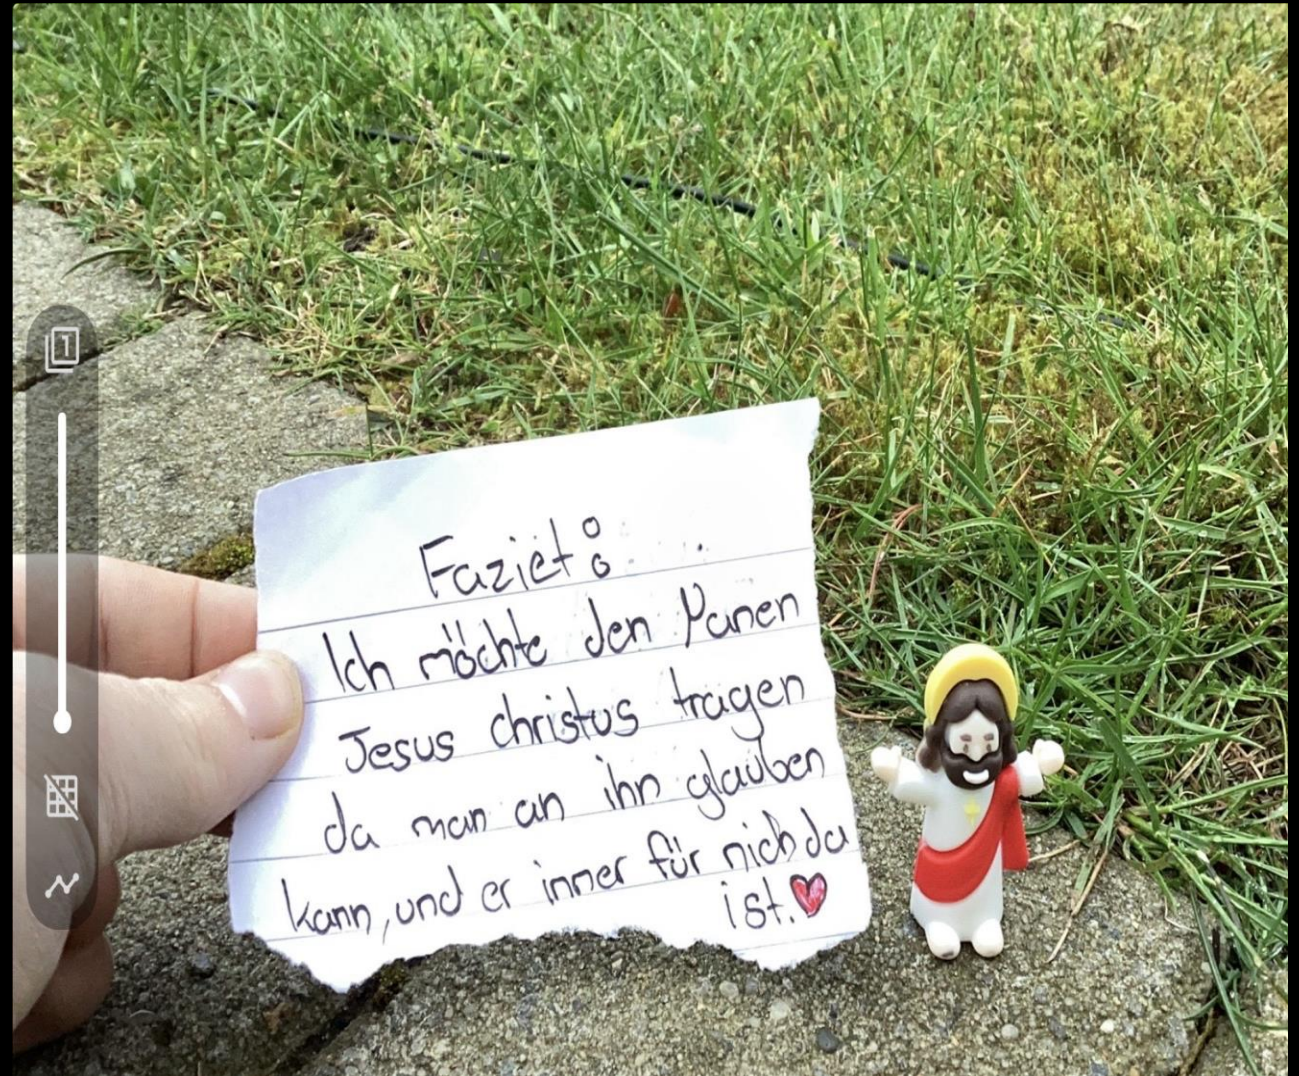 Faziet:
Ich möchte den Nanen
Jesus christus tragen
da man an ihn glauben
kann, und er inner für nich da
ist.